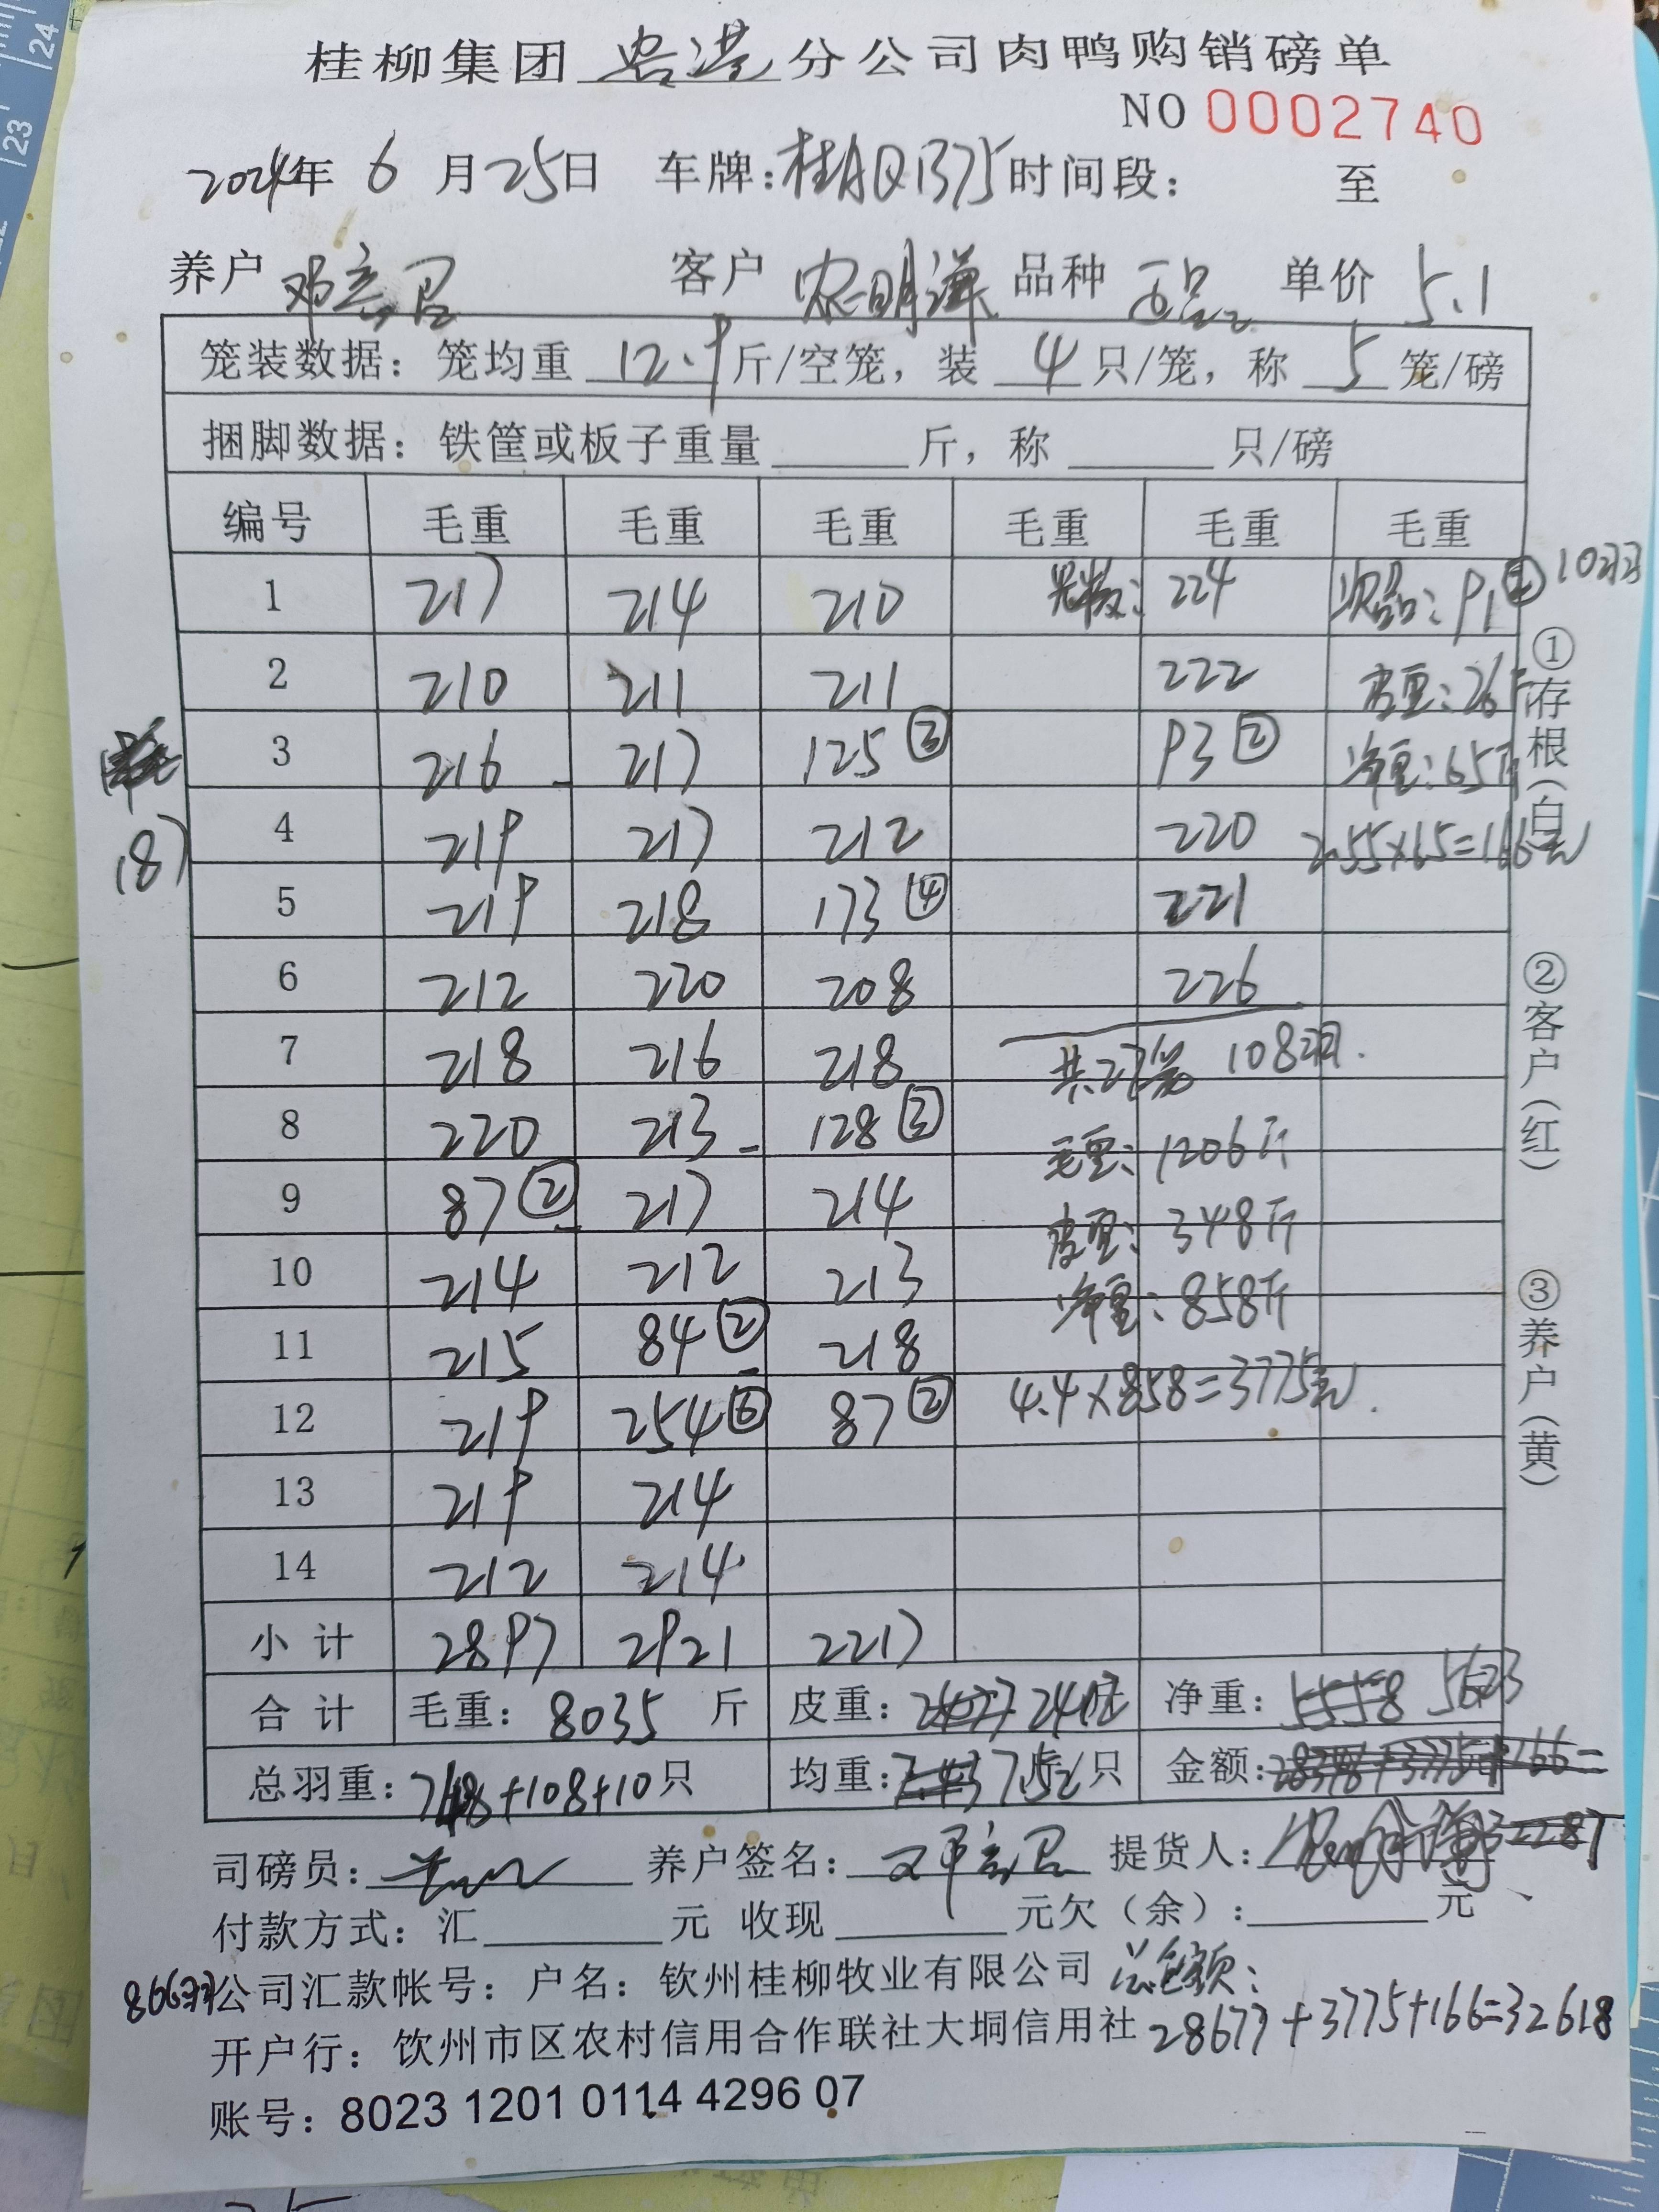 桂柳集团 分公司肉鸭购销磅单
NO 0002740
2024年 6 月 25日 车牌:桂AQ1375 时间段: 至
养户 邓 客户 农明 品种 单价 5.1
笼装数据: 笼均重 12.9 斤/空笼, 装 4 只/笼, 称 5 笼/磅
捆脚数据: 铁筐或板子重量 斤, 称 只/磅
编号 毛重 毛重 毛重 毛重 毛重 毛重
1 217 214 210 224 次品: 91② 10羽
2 210 211 211 222 皮重: 26斤
3 216 217 125③ 93② 净重: 65斤
4 219 217 212 220 2.55×65=166元
187
5 219 218 173④ 221
6 212 220 208 226
7 218 216 218 共27笼 108羽.
8 220 213 128③ 毛重: 1206斤
9 87② 217 214 皮重: 348斤
10 214 212 213 净重: 858斤
11 215 84② 218
12 219 254⑥ 87② 4.4×858=3775元.
13 219 214
14 212 214
小 计 2897 2921 2217
合 计 毛重: 8035 斤 皮重: 2412 净重: 5558 5623
总羽重: 748+108+10 只 均重: 7.43 7.52 只 金额: 28346+3775+166=
32287
司磅员: 养户签名: 邓 提货人:
付款方式: 汇 元 收现 元欠(余): 元
866羽
公司汇款帐号: 户名: 钦州桂柳牧业有限公司 总金额:
开户行: 钦州市区农村信用合作联社大垌信用社 28677+3775+166=32618
账号: 8023 1201 0114 4296 07
①存根(白) ②客户(红) ③养户(黄)